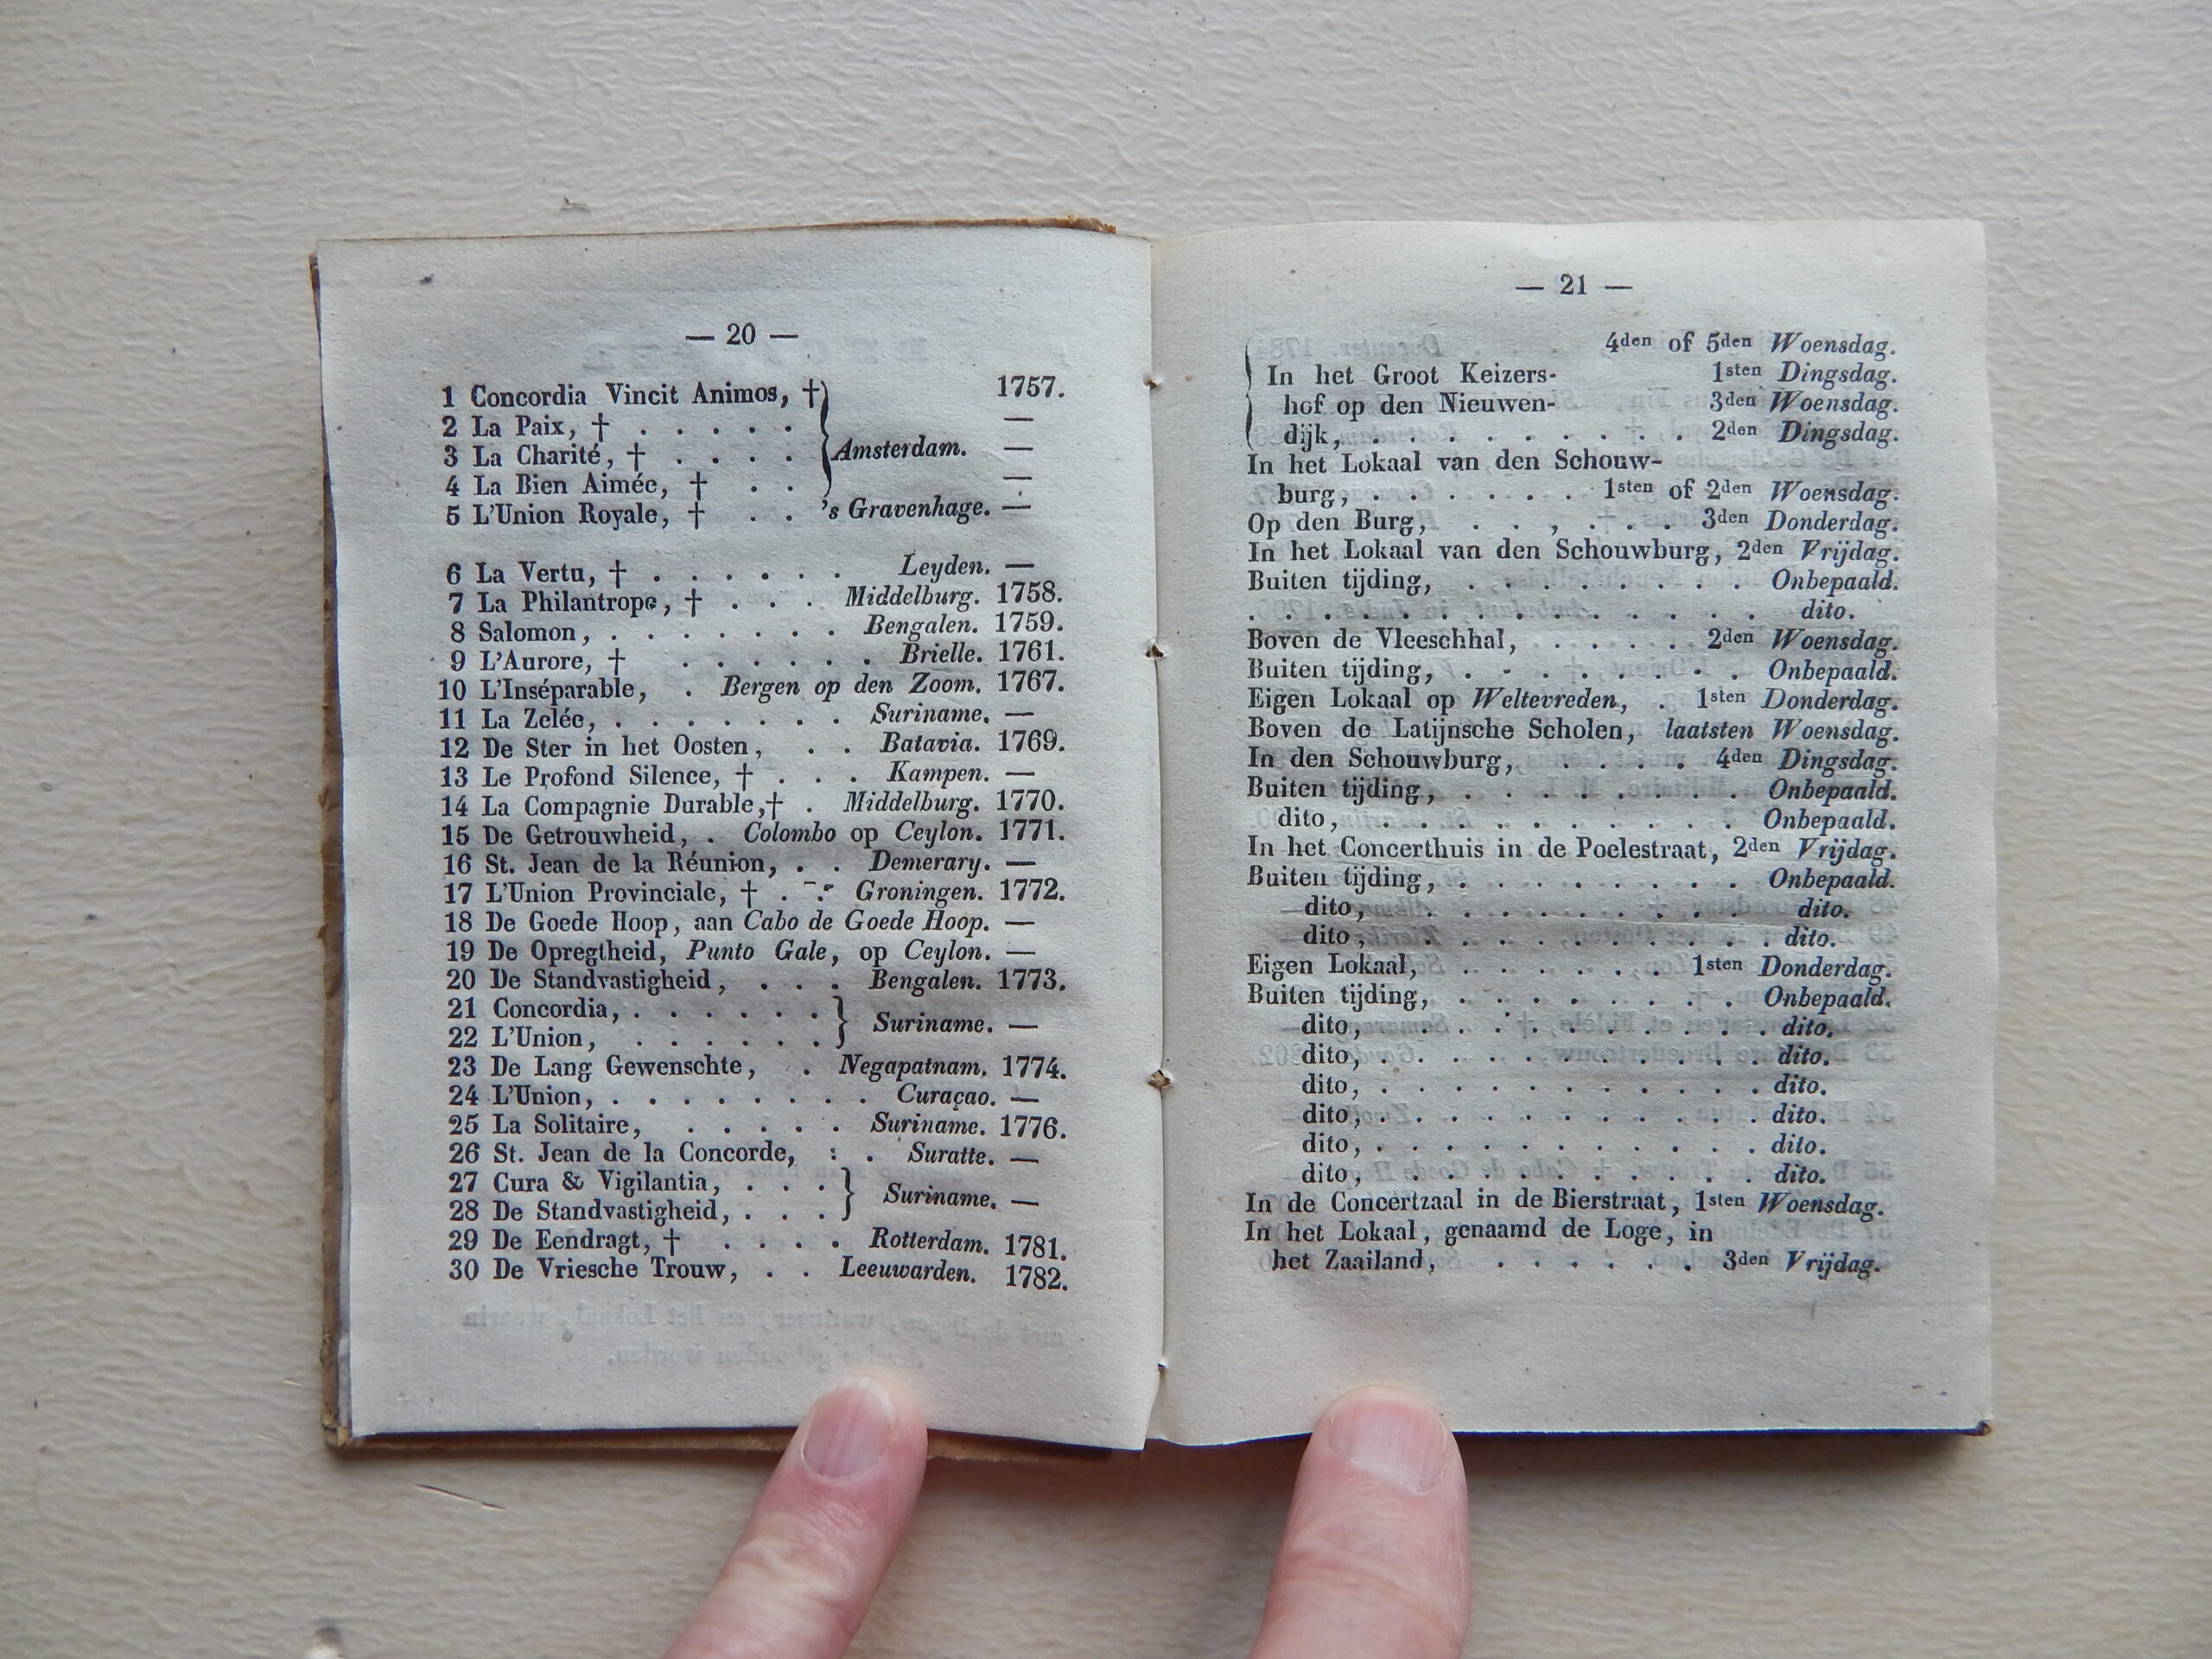 — 20 —
1 Concordia Vincit Animos, † 1757.
2 La Paix, † . . . . . —
3 La Charité, † . . . . Amsterdam. —
4 La Bien Aimée, † . . —
5 L'Union Royale, † . . 's Gravenhage. —
6 La Vertu, † . . . . . . Leyden. —
7 La Philantrope, † . . . Middelburg. 1758.
8 Salomon, . . . . . . . Bengalen. 1759.
9 L'Aurore, † . . . . . . Brielle. 1761.
10 L'Inséparable, . Bergen op den Zoom. 1767.
11 La Zelée, . . . . . . . Suriname. —
12 De Ster in het Oosten, . . Batavia. 1769.
13 Le Profond Silence, † . . . Kampen. —
14 La Compagnie Durable,† . Middelburg. 1770.
15 De Getrouwheid, . Colombo op Ceylon. 1771.
16 St. Jean de la Réunion, . . Demerary. —
17 L'Union Provinciale, † . . Groningen. 1772.
18 De Goede Hoop, aan Cabo de Goede Hoop. —
19 De Opregtheid, Punto Gale, op Ceylon. —
20 De Standvastigheid, . . . Bengalen. 1773.
21 Concordia, . . . . . .
22 L'Union, . . . . . . } Suriname. —
23 De Lang Gewenschte, . Negapatnam. 1774.
24 L'Union, . . . . . . . . Curaçao. —
25 La Solitaire, . . . . . Suriname. 1776.
26 St. Jean de la Concorde, : . Suratte. —
27 Cura & Vigilantia, . . .
28 De Standvastigheid, . . . } Suriname. —
29 De Eendragt, † . . . . Rotterdam. 1781.
30 De Vriesche Trouw, . . Leeuwarden. 1782.
— 21 —
4den of 5den Woensdag.
In het Groot Keizers- 1sten Dingsdag.
hof op den Nieuwen- 3den Woensdag.
dijk, . . . . . . . . . . 2den Dingsdag.
In het Lokaal van den Schouw-
burg, . . . . . . 1sten of 2den Woensdag.
Op den Burg, . . , . . . 3den Donderdag.
In het Lokaal van den Schouwburg, 2den Vrijdag.
Buiten tijding, . . . . . . . . Onbepaald.
. . . . . . . . . . . . . . dito.
Boven de Vleeschhal, . . . . . . 2den Woensdag.
Buiten tijding, . . . . . . . . Onbepaald.
Eigen Lokaal op Weltevreden, . 1sten Donderdag.
Boven de Latijnsche Scholen, laatsten Woensdag.
In den Schouwburg, . . . . . 4den Dingsdag.
Buiten tijding, . . . . . . . . Onbepaald.
dito, . . . . . . . . . . Onbepaald.
In het Concerthuis in de Poelestraat, 2den Vrijdag.
Buiten tijding, . . . . . . . . Onbepaald.
dito, . . . . . . . . . dito.
dito, . . . . . . . . . . dito.
Eigen Lokaal, . . . . . . 1sten Donderdag.
Buiten tijding, . . . . . . . . Onbepaald.
dito, . . . . . . . . . . dito.
dito, . . . . . . . . . . . dito.
dito, . . . . . . . . . . . dito.
dito, . . . . . . . . . . . dito.
dito, . . . . . . . . . . . dito.
dito, . . . . . . . . . . dito.
In de Concertzaal in de Bierstraat, 1sten Woensdag.
In het Lokaal, genaamd de Loge, in
het Zaailand, . . . . . . 3den Vrijdag.